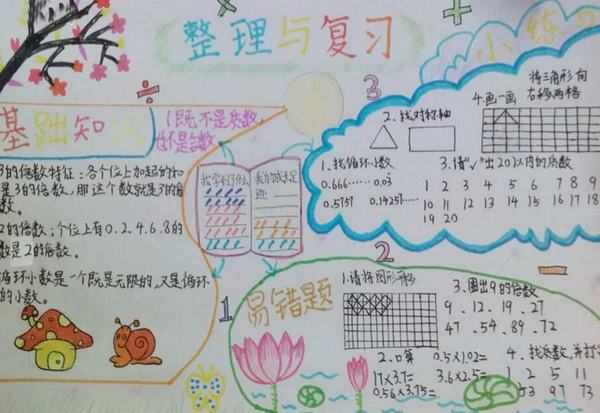 整理与复习
基础知
1既不是质数,
也不是合数。
的倍数特征:各个位上加起的和
是3的倍数,那这个数就是3的倍
数。
2的倍数:个位上有0.2.4.6.8的
数是2的倍数。
循环小数是一个既是无限的,又是循环
的小数。
我学到了什么
我的不足
3
小练习
1.找循环小数
0.666…… 0.03
0.5757 0.14251……
2.找对称轴
3.请“√”出20以内的质数
1 2 3 4 5 6 7 8 9
10 11 12 13 14 15 16 17 18
19 20
4.画一画
将三角形向
右移两格
1
2
易错题
1.请将图形平移
2.口算 0.5×1.02=
17×3.7= 3.6×2.5=
0.56×3.75=
3.圈出9的倍数
9.12.19.27
47.54.89.72
4.找质数,并打
1 2 5 11
53 97 73